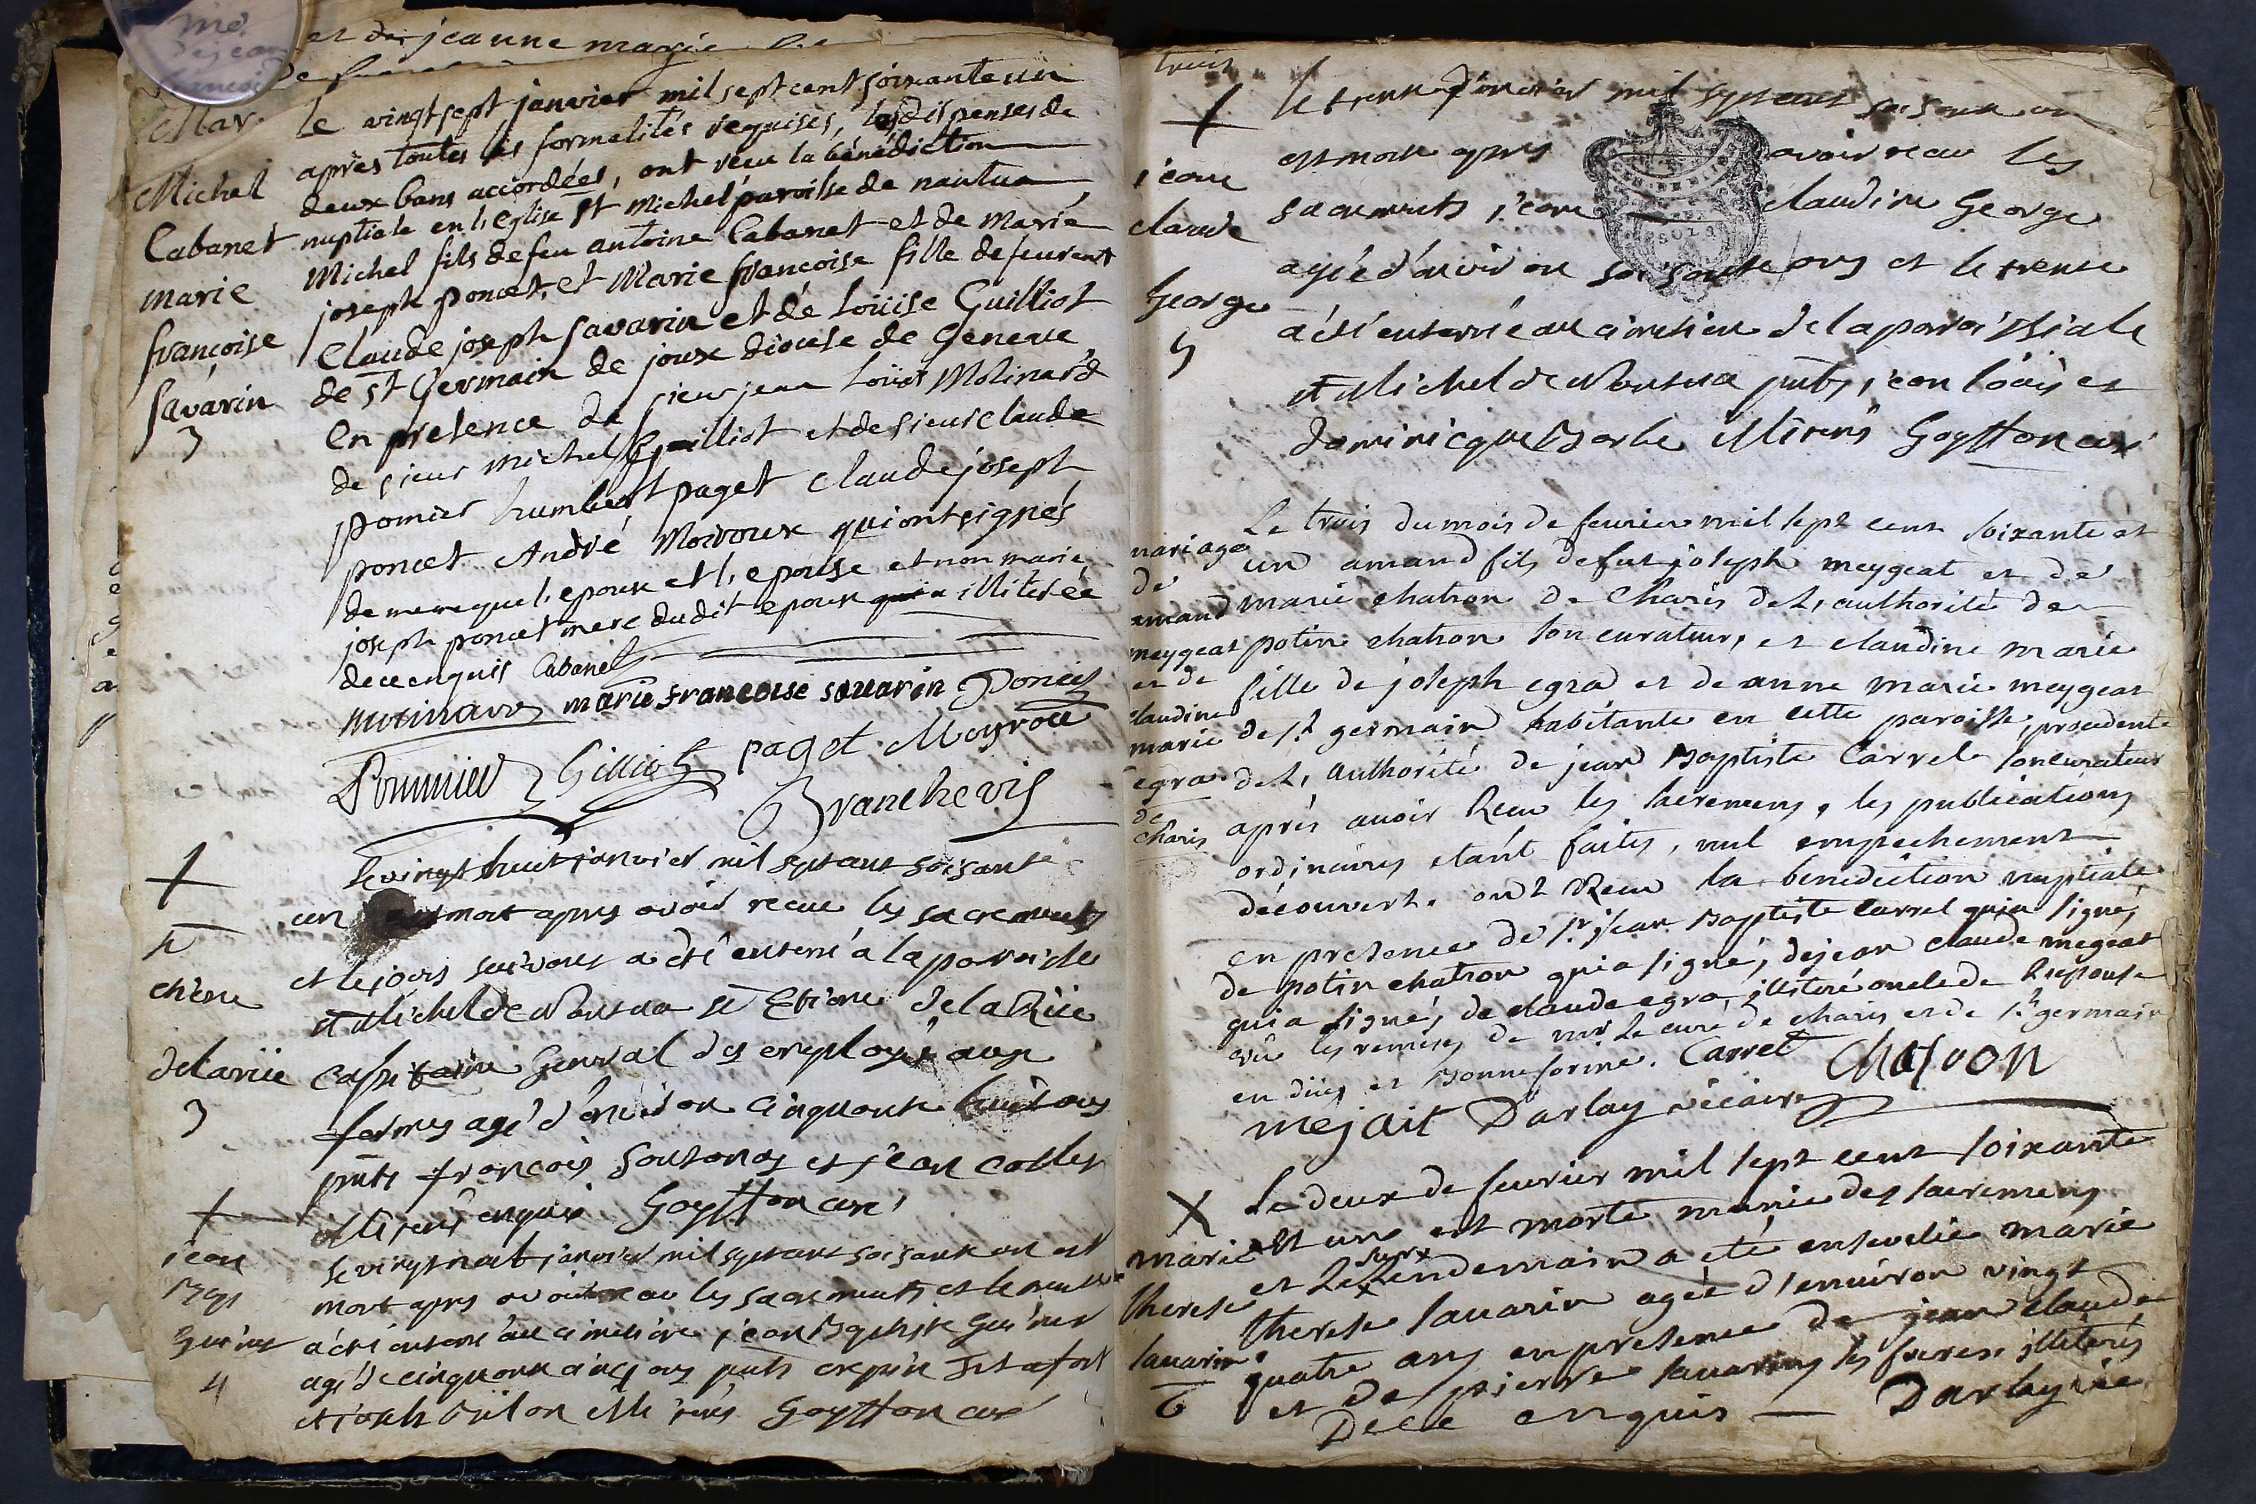 et de jeanne marie
Mar. le vingt sept janvier mil sept cent soixante un
après toutes les formalités requises, les dispenses de
Michel deux bans accordées, ont recu la bénédiction
Cabanet nuptiale en l'eglise st Michel paroisse de nantua
Michel fils de feu antoine Cabanet et de Marie
marie joseph poncet, et Marie françoise fille de feu
françoise Claude joseph Savarin et de Loüise Guilliot
Savarin de st Germain de joux diocese de Geneve,
3 En presence de sieur jean Loüis Molinard
de sieur Michel Guilliot et de sieur Claude
pomier humbert paget Claude joseph
poncet André Moiroux qui ont signés
de meme que l'epoux et l'epouse et non marie
joseph poncet mere dudit epoux illiterée
de ce enquis Cabanet
molinard marie francoise savarin Poncet
Pommier Gilliot paget Moyroux
Branchevis
le vingt huit janvier mil sept cent soisante
un est mort apres avoir recue les sacrements
sr et le jour suivant a été enterré a la paroisse
etiene st Michel de Nantua sr Etiene de la Rüe
delarüe Capitaine General des employés aux
3 fermes agé d'environ cinquante huit ans
pnts françois et jean
illiterés enquis Goyffon curé
jean le vingt neuf janvier mil sept cent soisante un est
Bap mort apres avoir recue les sacrements et le
a été enterré au cimetiere jean Baptiste
4 agé de cinquante cinq ans pnts
et illiterés Goyffon curé
trois
le trente janvier mil sept cent soisante un
est morte apres avoir recue les
jeane sacrements jeane claudine George
claude agée d'environ soisante ans et le trente
George a été enterrée au cimetiere de la paroissiale
5 st Michel de Nantua pnts jean loüis et
dominicque Barbe illiterés Goyffon curé
mariage Le trois du mois de feurier mil sept cent soixante et
de un amand fils de fut joseph meygeat et de
amand marie chatron de Charis de l'authorité de
meygeat potin chatron son curateur, et claudine marie
et de fille de joseph egra et de anne marie meygeat
claudine
marie de st germain habitante en cette paroisse, procedente
egra de l'authorité de jean Baptiste Carrel son curateur
de
charis après avoir Receu les sacremens, les publications
ordinaires etánt faites, nul empechement
découvert. ont Receu la benediction nuptiale
en presence de sr jean Baptiste Carrel qui a signé,
de potin chatron qui a signé, de jean claude megeat
qui a signé, de claude egra, illiteré oncle de l'epouse
vû les remises de mr le curé de charis et de st germain
en dües et Bonne forme. Carrel Chatron
mejait Darlay vicaire
Le deux de feurier mil sept cent soixante
marie et une est morte munie des sacremens
et le surlendemain a eté ensevelie marie
therese therese sauarin agée d'enuiron vingt
sauarin quatre ans en presence de jean claude
6 et de pierre sauarins ses freres illiterés
De ce enquis — Darlay vic